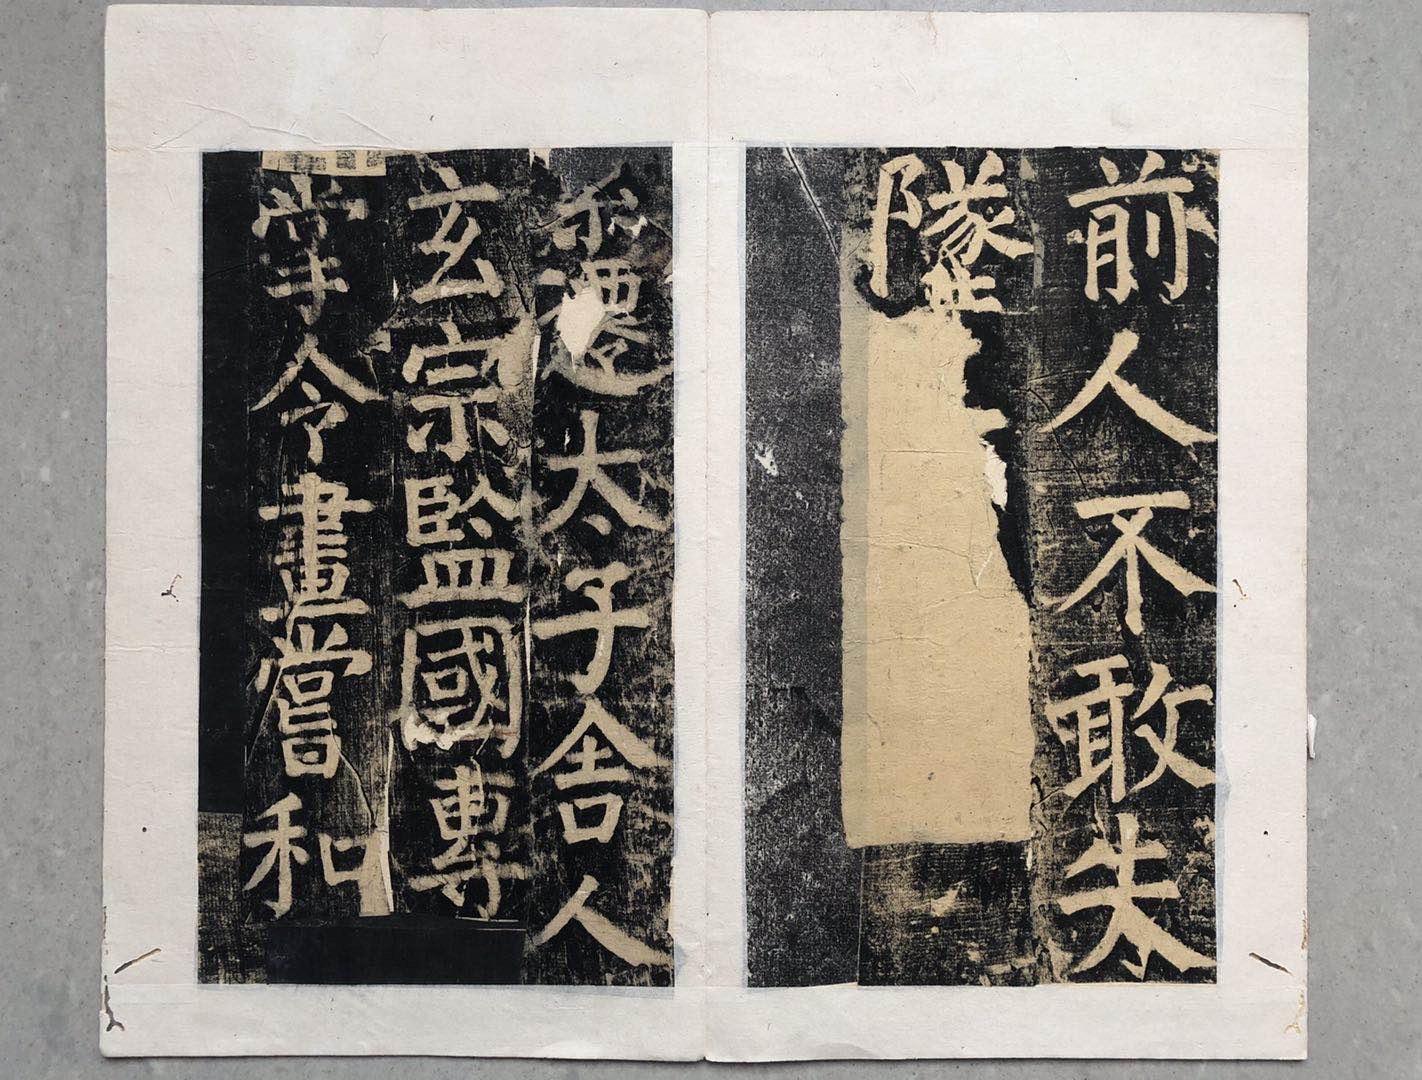 前人不敢失
墜
遷太子舍人
玄宗監國專
掌令畫嘗和